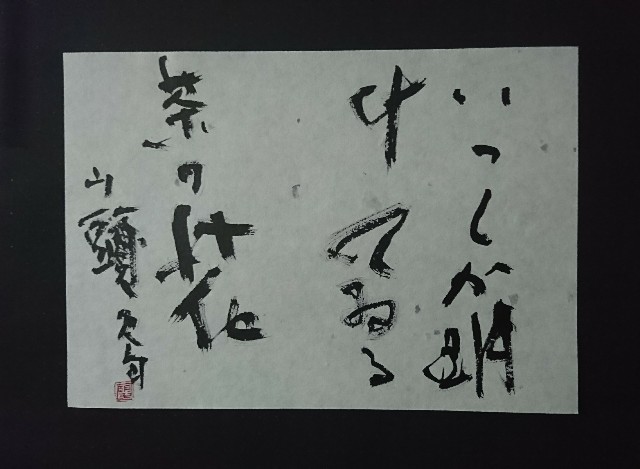 いつしか明
けてゐる
茶の花
山頭火句